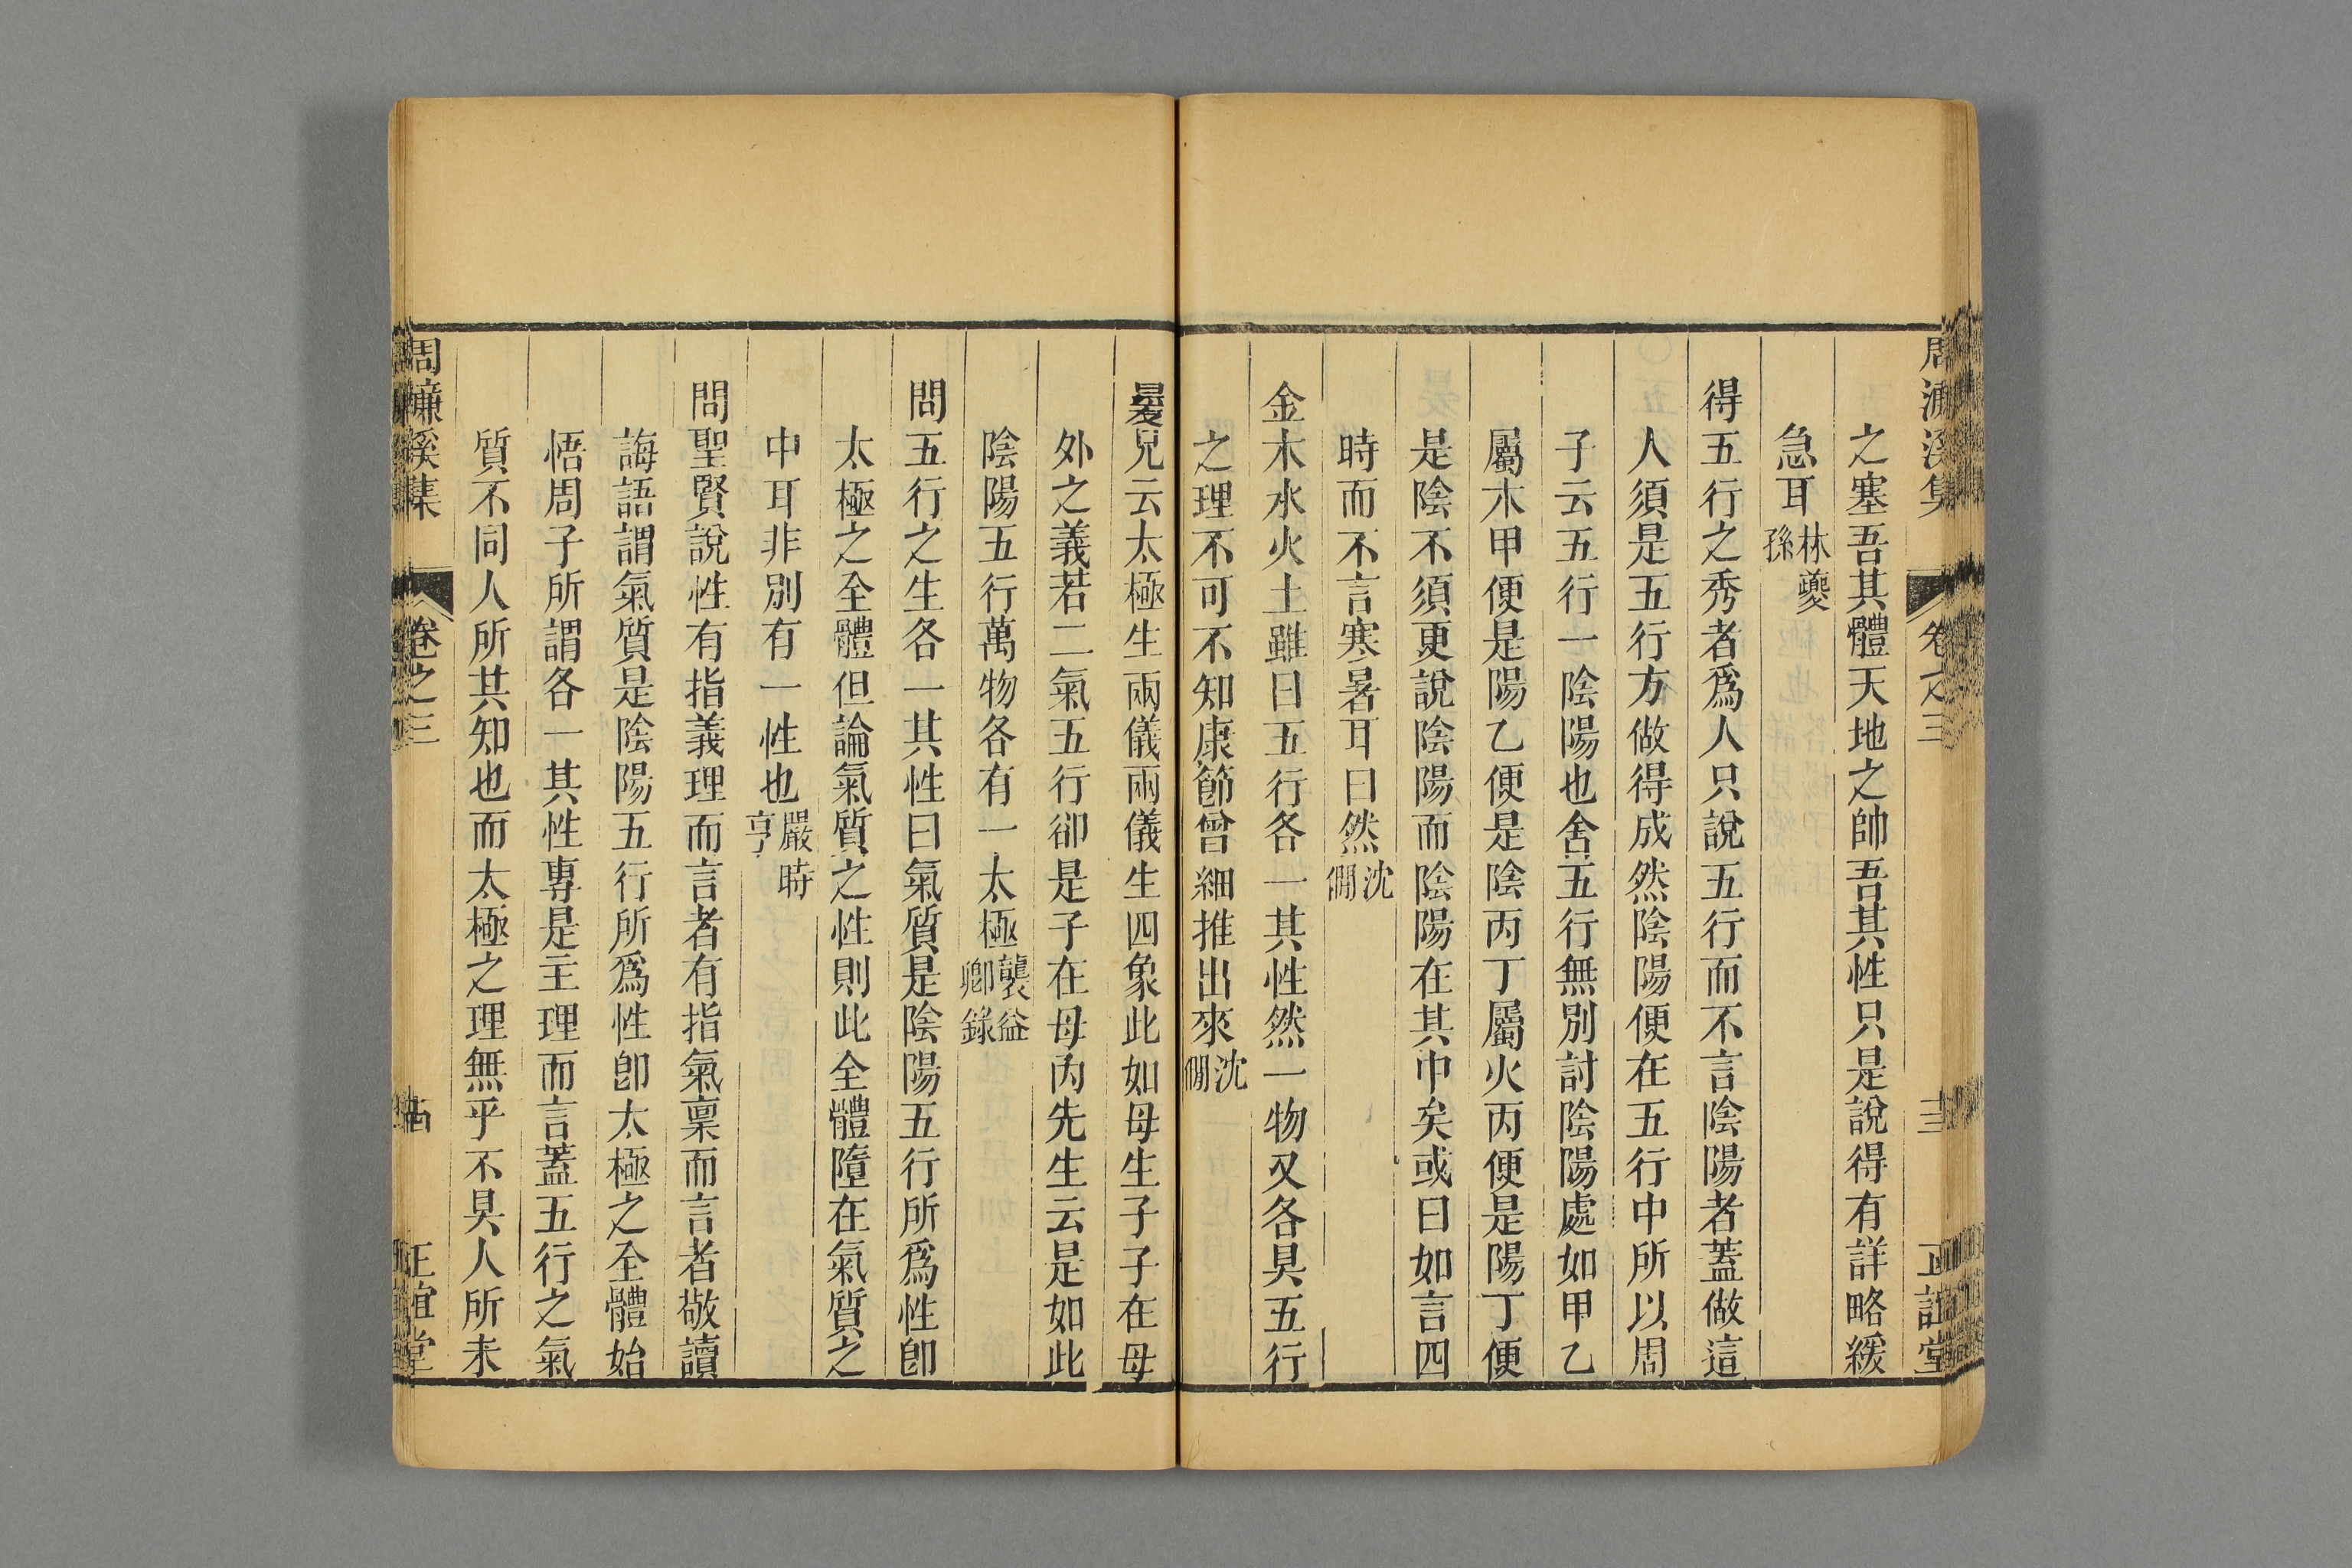 周濂溪集 卷之三 三 正誼堂
之塞吾其體天地之帥吾其性只是說得有詳略緩
急耳林夔孫
得五行之秀者爲人只說五行而不言陰陽者蓋做這
人須是五行方做得成然陰陽便在五行中所以周
子云五行一陰陽也舍五行無別討陰陽處如甲乙
屬木甲便是陽乙便是陰丙丁屬火丙便是陽丁便
是陰不須更說陰陽而陰陽在其中矣或曰如言四
時而不言寒暑耳曰然沈僩
金木水火土雖曰五行各一其性然一物又各具五行
之理不可不知康節曾細推出來沈僩
㬊兄云太極生兩儀兩儀生四象此如母生子子在母
外之義若二氣五行卻是子在母內先生云是如此
陰陽五行萬物各有一太極襲益卿錄
問五行之生各一其性曰氣質是陰陽五行所爲性卽
太極之全體但論氣質之性則此全體墮在氣質之
中耳非別有一性也嚴時亨
問聖賢說性有指義理而言者有指氣稟而言者敬讀
誨語謂氣質是陰陽五行所爲性卽太極之全體始
悟周子所謂各一其性專是主理而言蓋五行之氣
質不同人所共知也而太極之理無乎不具人所未
周濂溪集 卷之三 正誼堂